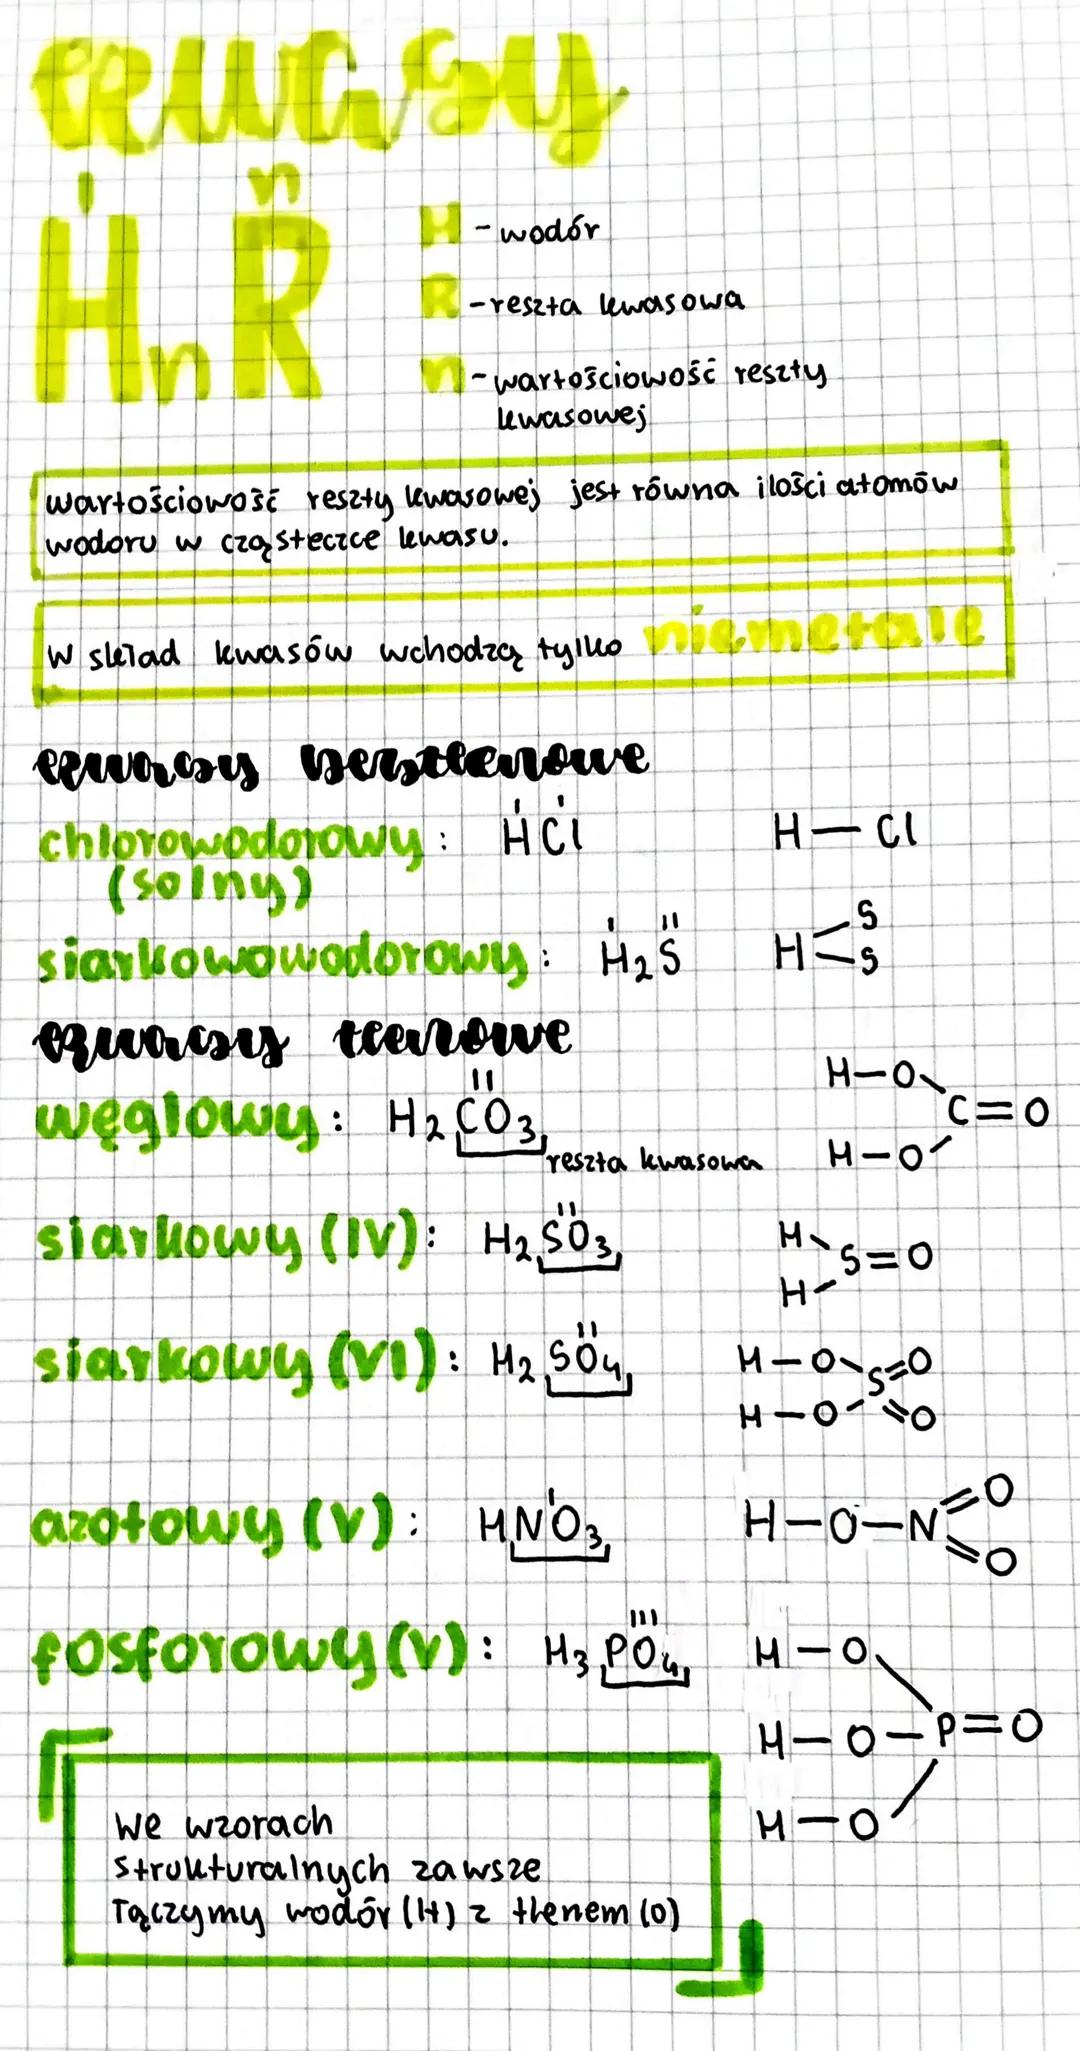 kwasy
I n
HnR
H - wodór
R - reszta kwasowa
n - wartościowość reszty
kwasowej
wartościowość reszty kwasowej jest równa ilości atomów
wodoru w cząsteczce kwasu.
W skład kwasów wchodzą tylko niemetale
kwasy beztlenowe
chlorowodorowy: HCl H—Cl
(solny)
siarkowowodorowy: H₂S H S S
kwasy tlenowe
węglowy: H₂CO₃ H—O C=O H—O
reszta kwasowa
siarkowy (IV): H₂SO₃ H S=O H
siarkowy (VI): H₂SO₄ H—O S=O H—O =O
azotowy (V): HNO₃ H—O—N=O =O
fosforowy (V): H₃PO₄ H—O
H—O—P=O
H—O
We wzorach
strukturalnych zawsze
łączymy wodór (H) z tlenem (O)